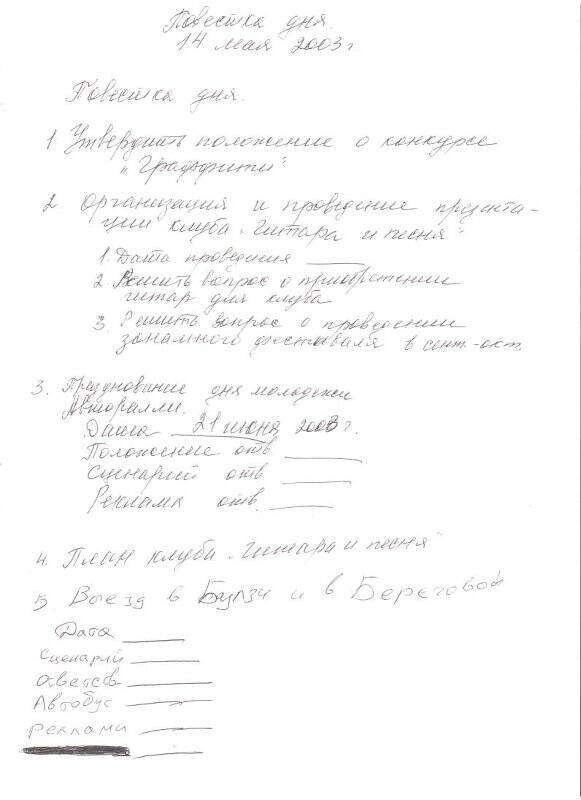 Повестка дня.
14 мая 2003г
Повестка дня.
1 Утвердить положение о конкурсе
"Граффити"
2 Организация и проведение презента-
ции клуба "Гитара и песня"
1. Дата проведения
2. Решить вопрос о приобретении
гитар для клуба
3. Решить вопрос о проведении
зонального фестиваля в сент.-окт.
3. Празднование дня молодежи
Авторалли.
Дата 21 июня 2003г.
Положение отв
Сценарий отв
Реклама отв.
4. План клуба "Гитара и песня"
5 Выезд в и в Береговой
Дата
Сценарий
ответств
Автобус
Реклама